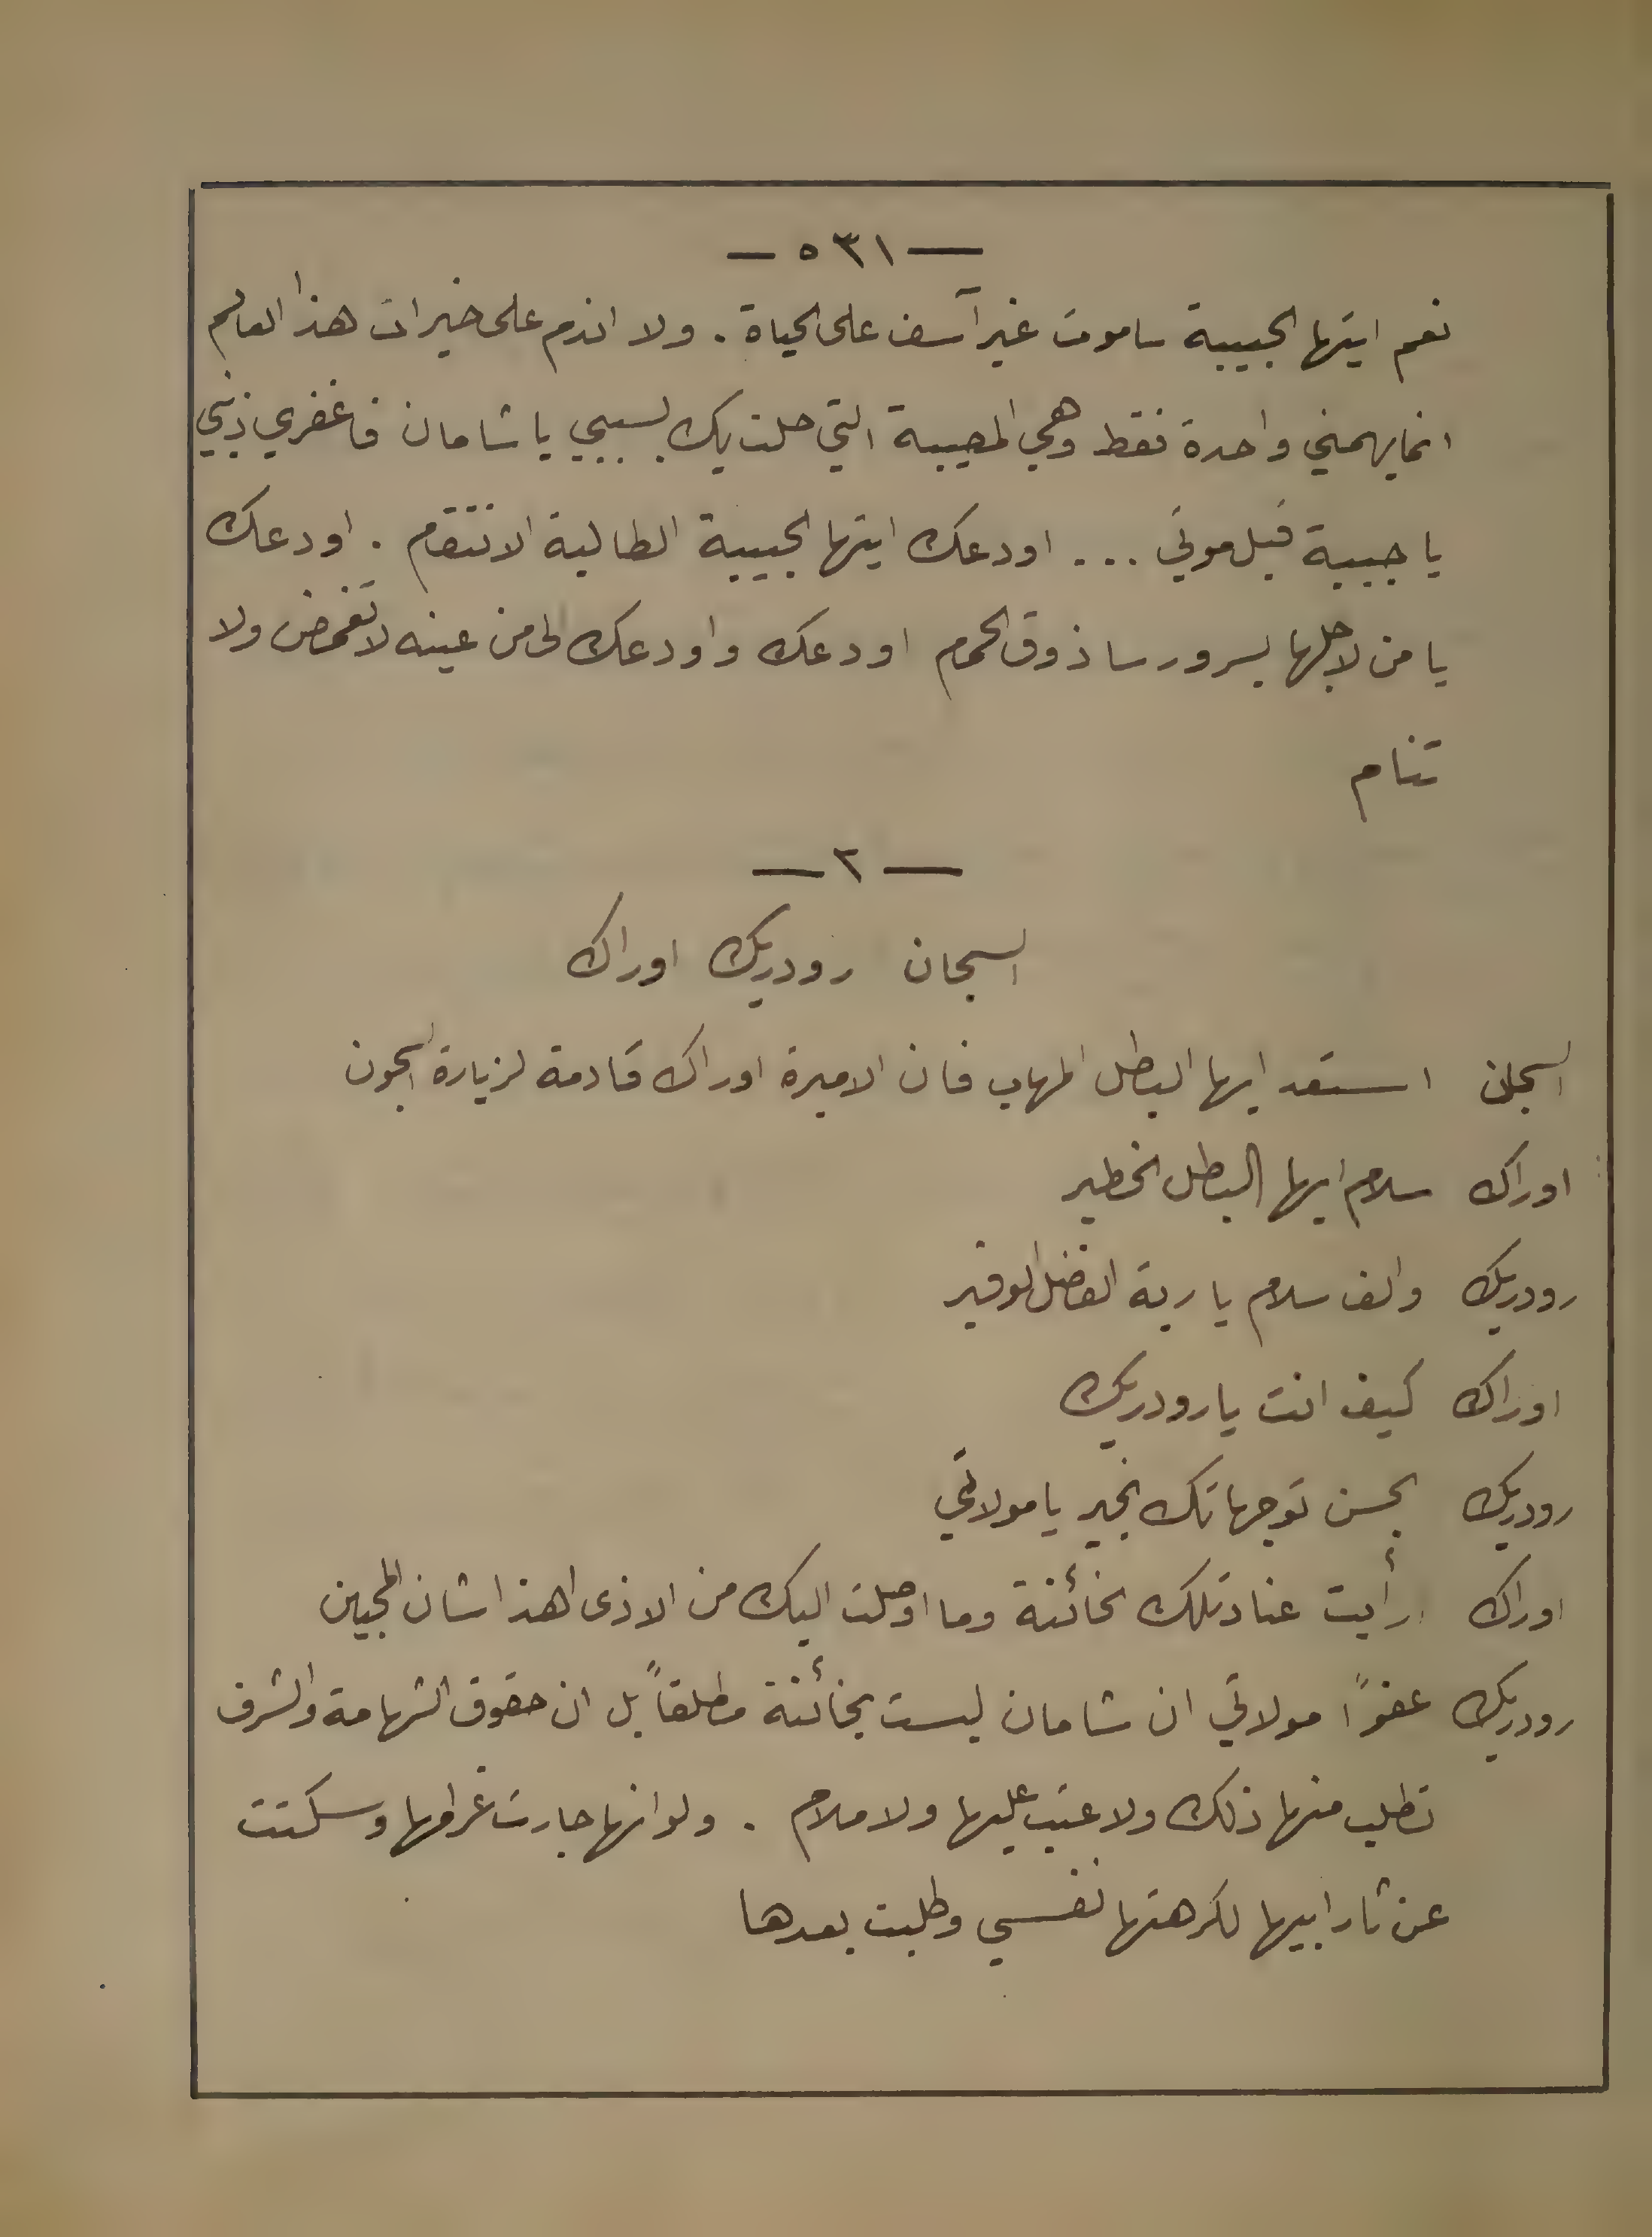 — ٥٣١ —
نعم ايتها الحبيبة ساموت غير آسف على الحياة . ولا اندم على خيرات هذا العالم
انما يهمني واحدة فقط وهي المصيبة التي حلت بك بسببي يا شامان فاغفري ذنبي
يا حبيبة قبل موتي ... اودعك ايتها الحبيبة الطالبة الانتقام . اودعك
يا من لاجلها بسرور ساذوق الحمام اودعك واودعك لى من عينه لا تغمض ولا
تنام
— ٢ —
السجان رودريك اوراك
السجان استعد ايها البطل المهاب فان الاميرة اوراك قادمة لزيارة السجون
اوراك سلام ايها البطل الخطير
رودريك والف سلام يا ربة الفضل الوفير
اوراك كيف انت يا رودريك
رودريك بحسن توجهاتك بخير يا مولاتي
اوراك أرأيت عناد تلك الخائنة وما اوصلت اليك من الاذى اهذا شان المحبين
رودريك عفوًا مولاتي ان شامان ليست بخائنة مطلقاً بل ان حقوق الشهامة والشرف
تطلب منها ذلك ولا عتب عليها ولا ملام . ولو انها جارت غرامها وسكتت
عن ثار ابيها لكرهتها نفسي وطلبت بعدها